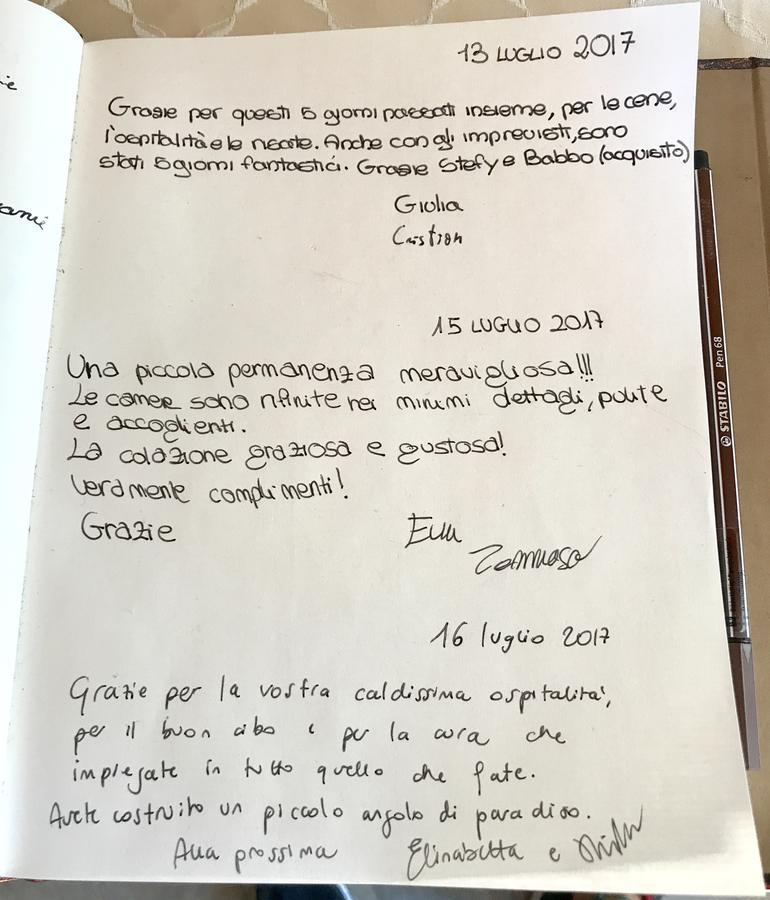 13 LUGLIO 2017
Grazie per questi 5 giorni passati insieme, per le cene,
l'ospitalità e le nottate. Anche con gli imprevisti, sono
stati 5 giorni fantastici. Grazie Stefy e Babbo (acquisito)
Giulia
15 LUGLIO 2017
Una piccola permanenza meravigliosa!!!
Le camere sono rifinite nei minimi dettagli, pulite
e accoglienti.
La colazione graziosa e gustosa!
Veramente complimenti!
Grazie
Tommaso
16 luglio 2017
Grazie per la vostra caldissima ospitalità,
per il buon cibo e per la cura che
impiegate in tutto quello che fate.
Avete costruito un piccolo angolo di paradiso.
Alla prossima
Elisabetta e
STABILO Pen 68